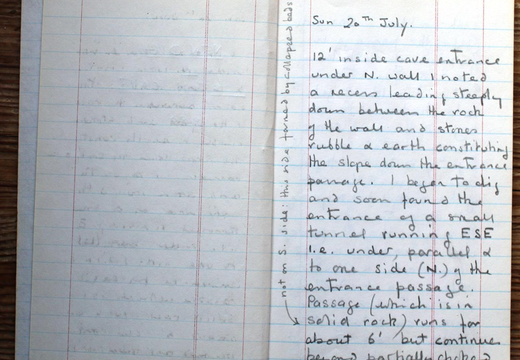 Sun 20th July.
12' inside cave entrance
under N. wall I noted
a recess leading steeply
down between the rock
of the wall and stones
rubble & earth constituting
the slope down the entrance
passage. I began to dig
and soon found the
entrance of a small
tunnel running ESE
i.e. under, parallel &
to one side (N.) of the
entrance passage.
Passage (which is in
solid rock) runs for
about 6' but continues
beyond partially choked
not on S. side: this side formed by collapsed beds